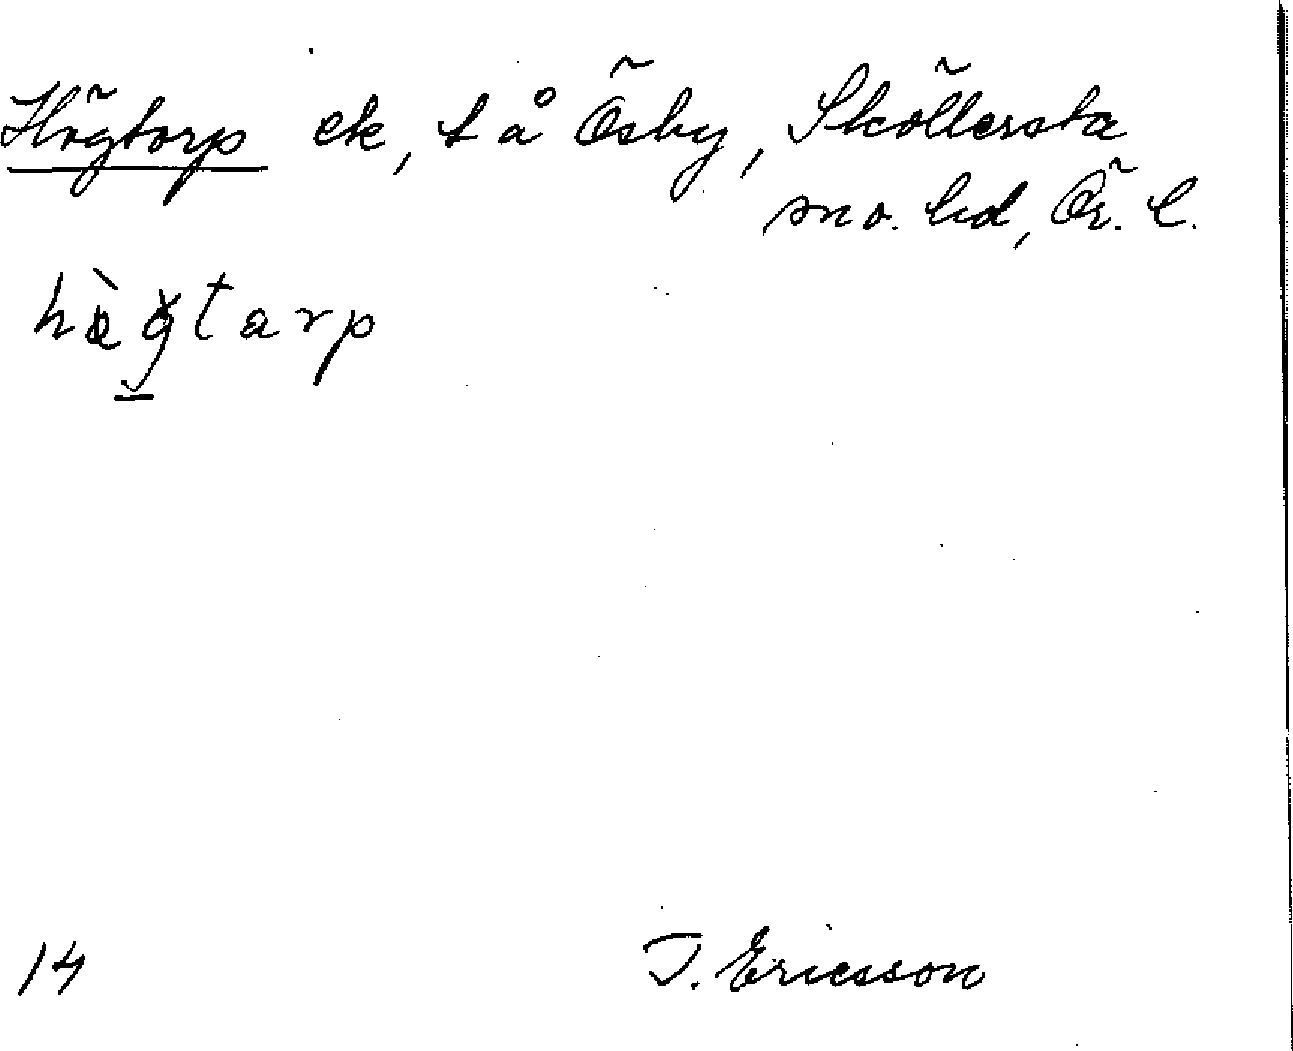 Högtorp ek, t å Ösby, Sköllersta
sn o. hd, Ör. l.
14
T. Ericsson